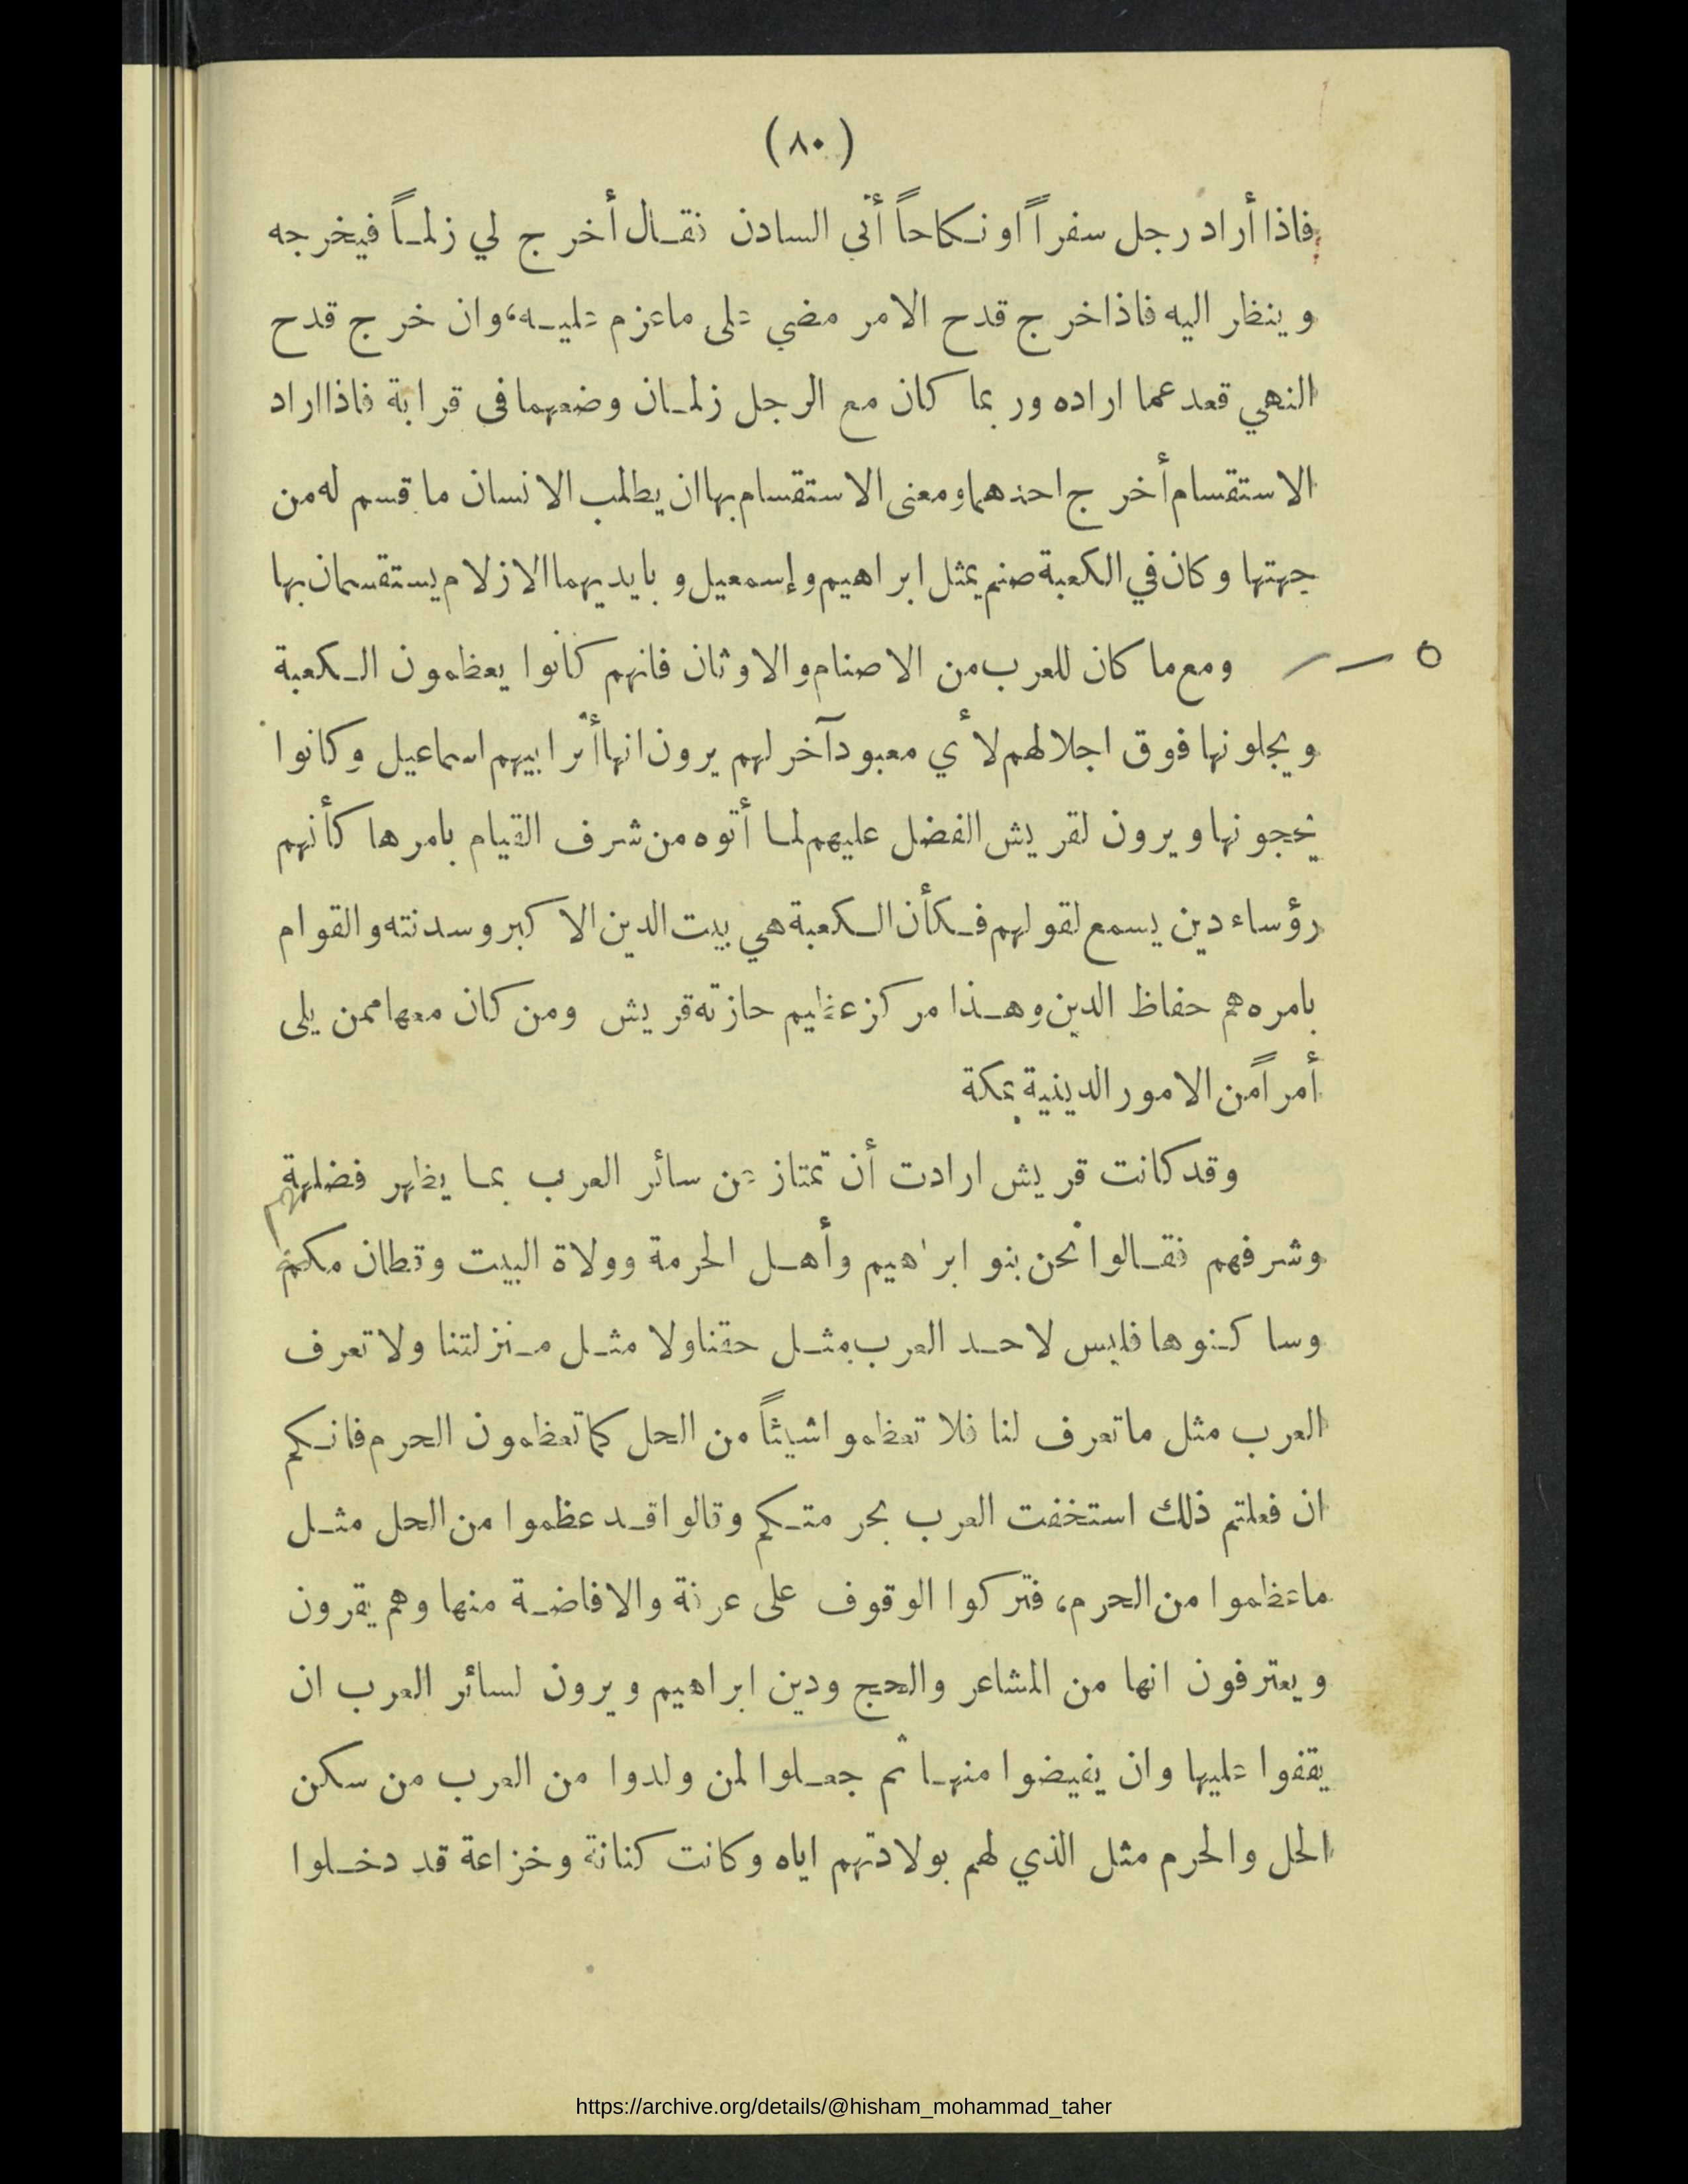 (٨٠)
فاذا أراد رجل سفراً او نكاحاً أتى السادن فقال أخرج لي زلماً فيخرجه
وينظر اليه فاذا خرج قدح الامر مضي على ماعزم عليه، وان خرج قدح
النهي قعد عما اراده وربما كان مع الرجل زلمان وضعهما فى قرابة فاذا اراد
الاستقسام أخرج احدهما ومعنى الاستقسام بها ان يطلب الانسان ما قسم له من
جهتها وكان في الكعبة صنم يمثل ابراهيم وإسمعيل وبايديهما الازلام يستقسمان بها
ومع ما كان للعرب من الاصنام والاوثان فانهم كانوا يعظمون الكعبة
ويجلونها فوق اجلالهم لأي معبود آخر لهم يرون انها أثر ابيهم اسماعيل وكانوا
يحجونها ويرون لقريش الفضل عليهم لما أتوه من شرف القيام بامرها كأنهم
رؤساء دين يسمع لقولهم فكأن الكعبة هي بيت الدين الاكبر وسدنته والقوام
بامره هم حفاظ الدين وهذا مركز عظيم حازته قريش ومن كان معها ممن يلى
أمراً من الامور الدينية بمكة
وقد كانت قريش ارادت أن تمتاز عن سائر العرب بما يظهر فضلهم
وشرفهم فقالوا نحن بنو ابراهيم وأهل الحرمة وولاة البيت وقطان مكة
وساكنوها فليس لاحد العرب مثل حقنا ولا مثل منزلتنا ولا تعرف
العرب مثل ماتعرف لنا فلا تعظموا شيئاً من الحل كما تعظمون الحرم فانكم
ان فعلتم ذلك استخفت العرب بحرمتكم وقالوا قد عظموا من الحل مثل
ماعظموا من الحرم، فتركوا الوقوف على عرفة والافاضة منها وهم يقرون
ويعترفون انها من المشاعر والحج ودين ابراهيم ويرون لسائر العرب ان
يقفوا عليها وان يفيضوا منها ثم جعلوا لمن ولدوا من العرب من سكن
الحل والحرم مثل الذي لهم بولادتهم اياه وكانت كنانة وخزاعة قد دخلوا
https://archive.org/details/@hisham_mohammad_taher